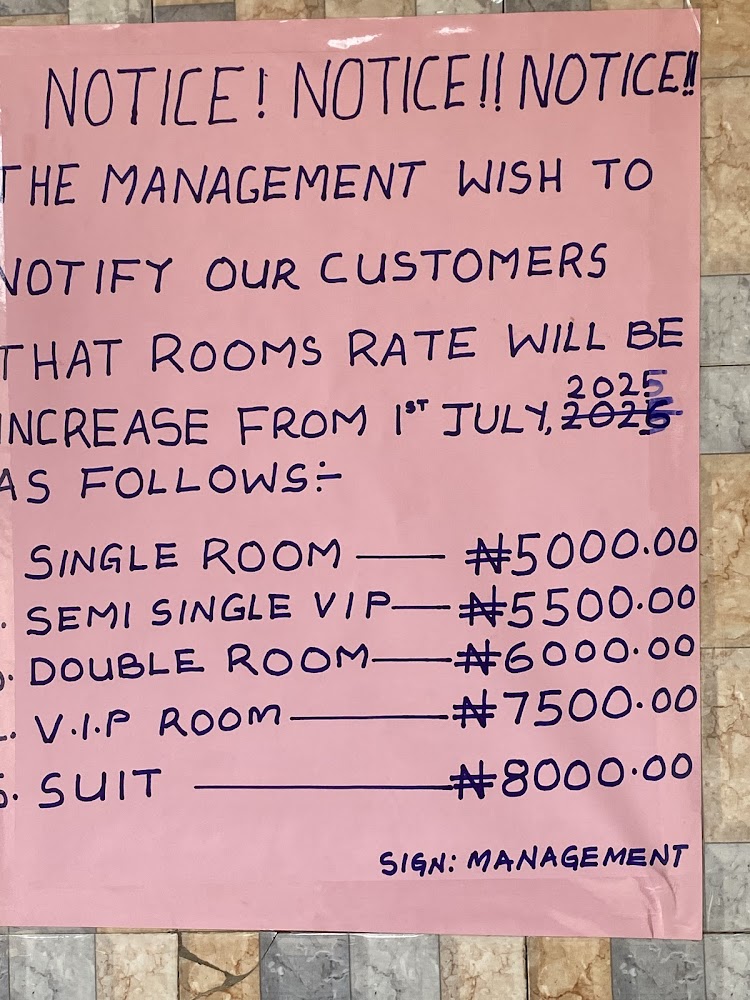 NOTICE! NOTICE!! NOTICE!!
THE MANAGEMENT WISH TO
NOTIFY OUR CUSTOMERS
THAT ROOMS RATE WILL BE
2025
INCREASE FROM 1ST JULY, 2026
AS FOLLOWS:-
SINGLE ROOM — ₦5000.00
. SEMI SINGLE VIP — ₦5500.00
. DOUBLE ROOM — ₦6000.00
. V.I.P ROOM — ₦7500.00
5. SUIT — ₦8000.00
SIGN: MANAGEMENT